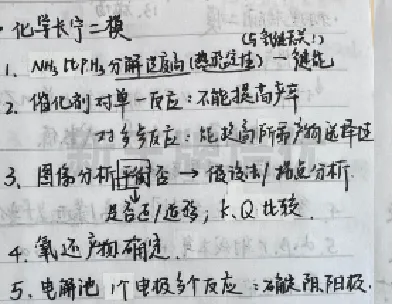 · 化学长宁二模
(与氢键无关!)
1. NH₃ 比PH₃分解温度高(热稳定性) — 键能
2. 催化剂 对单一反应:不能提高产率
对多个反应:能提高所需产物选择性
3. 图像分析平衡否 → 假设法/描点分析.
是否正/逆移; K、Q比较.
4. 氧还产物确定.
5. 电解池 1个电极多个反应:确定阴.阳极.